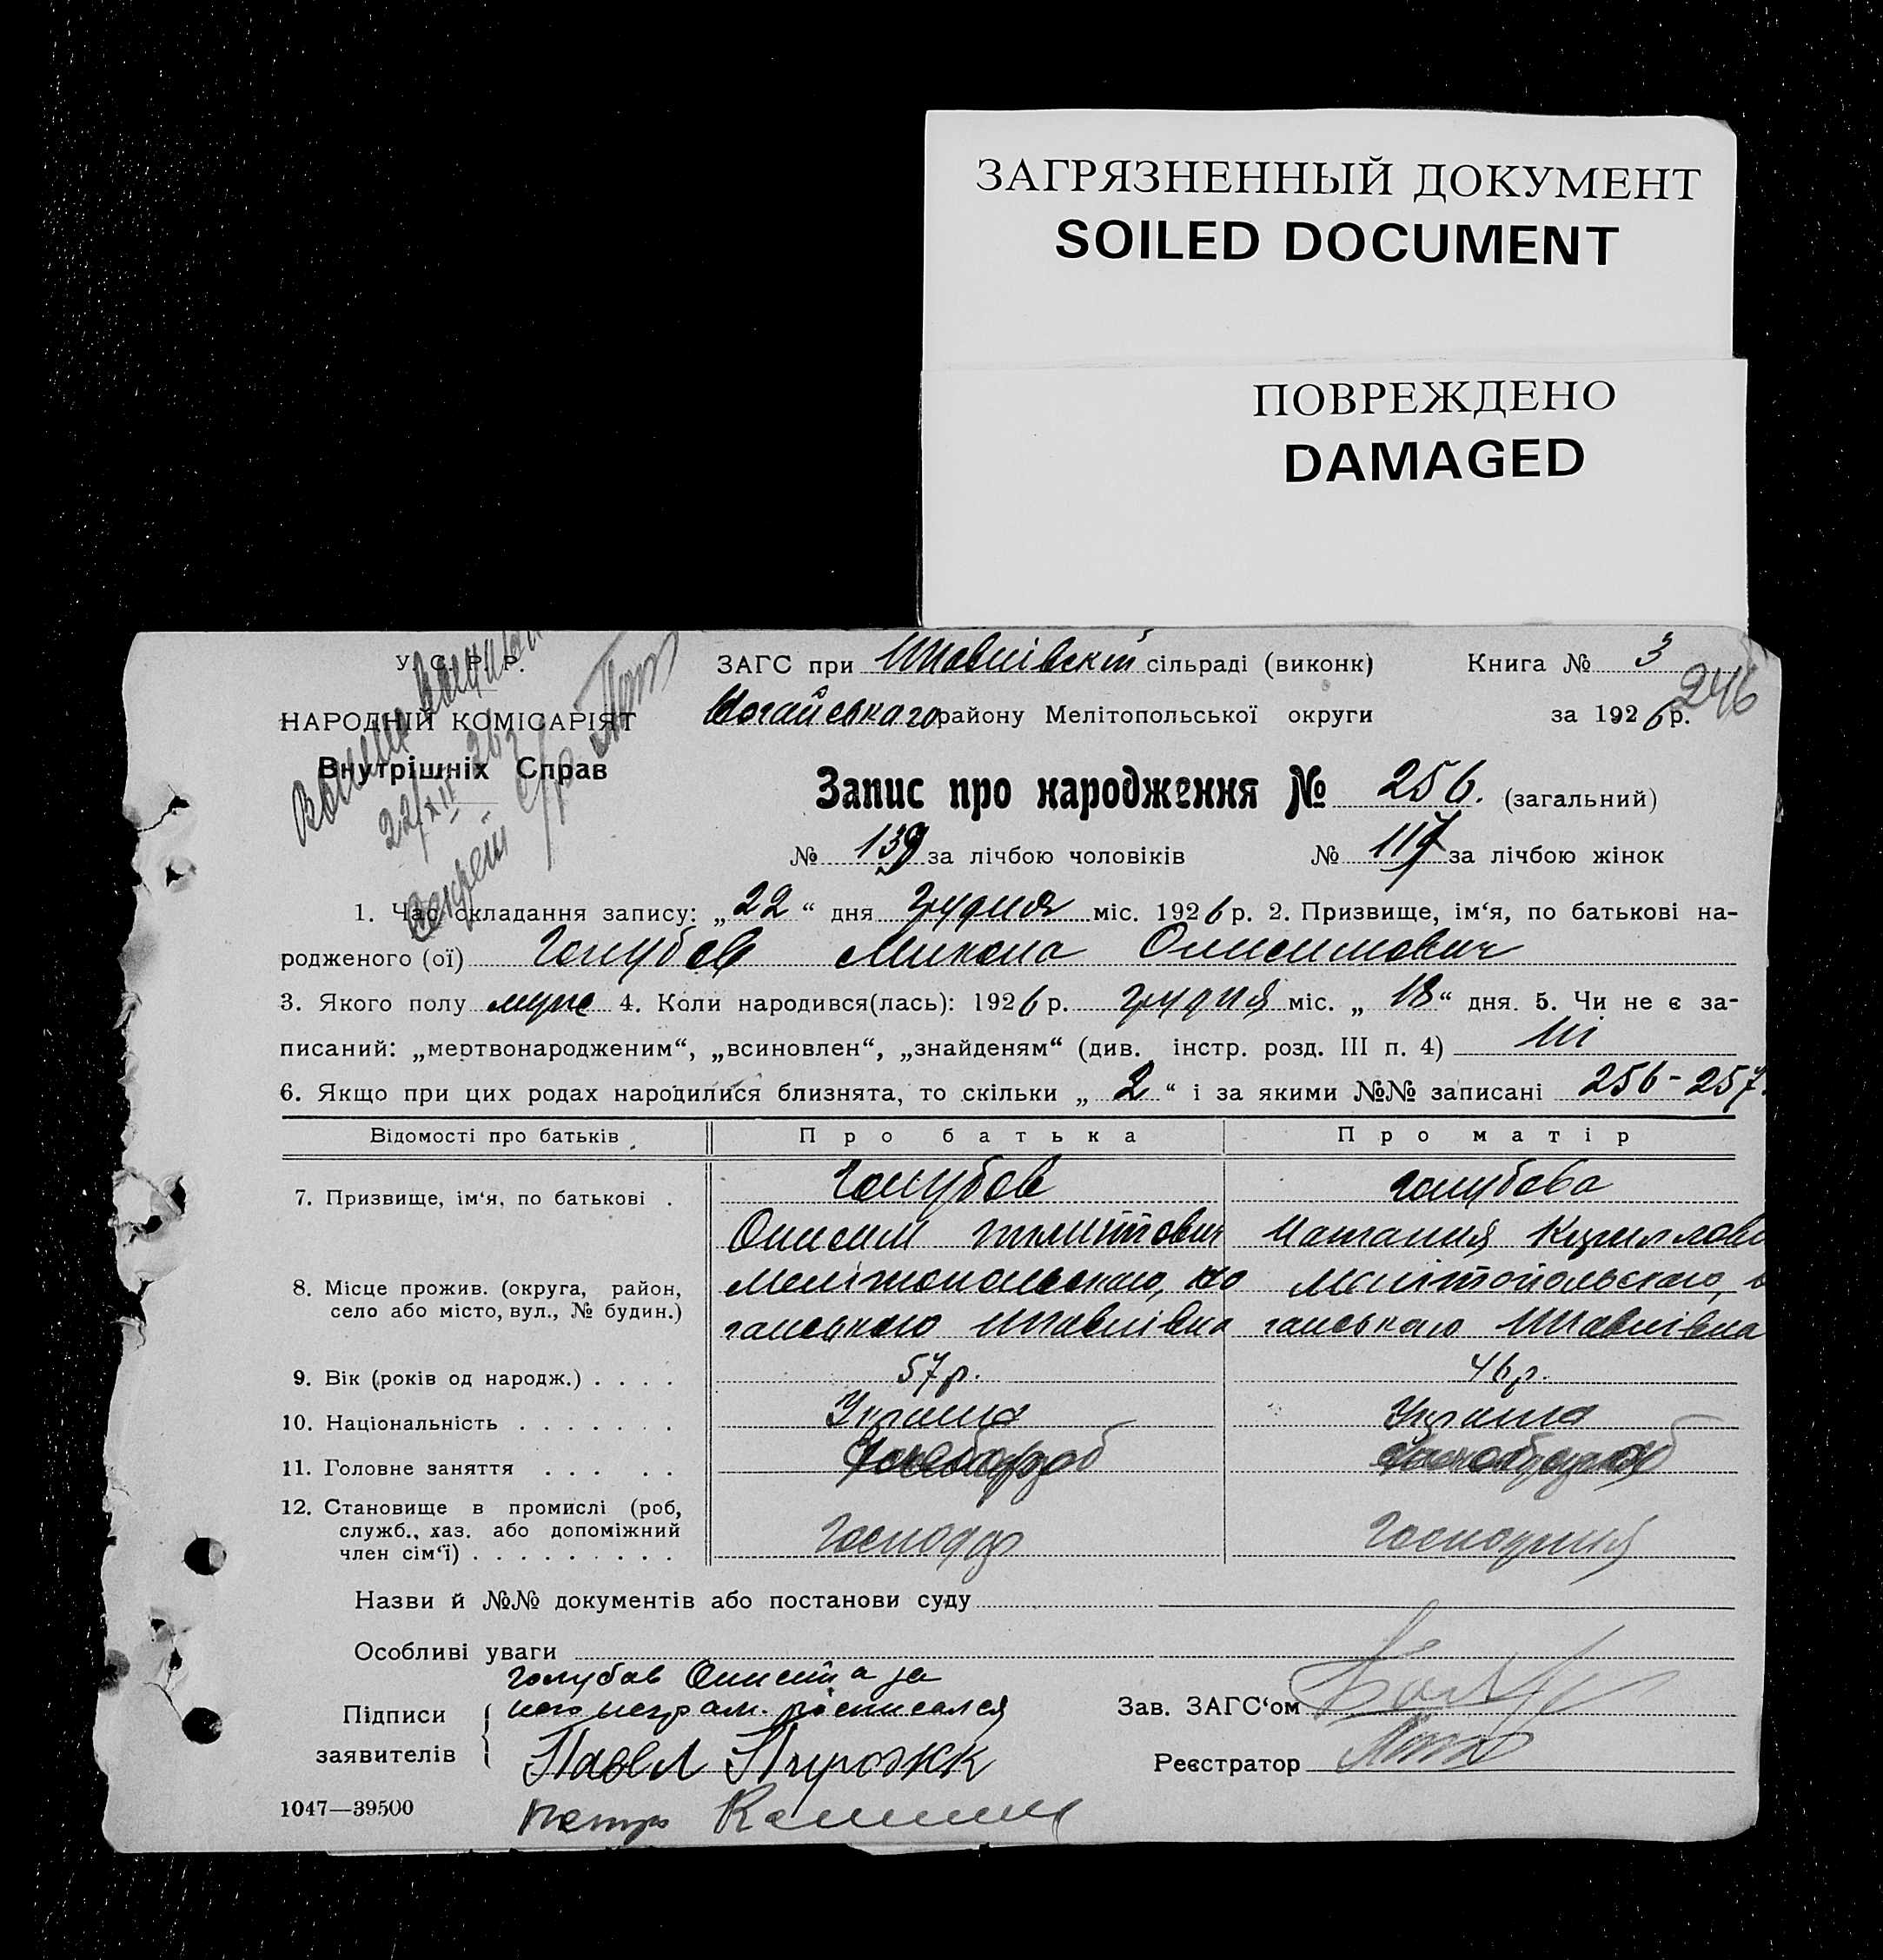 ЗАГРЯЗНЕННЫЙ ДОКУМЕНТ
SOILED DOCUMENT
ПОВРЕЖДЕНО
DAMAGED
У. С. Р. Р.
НАРОДНІЙ КОМІСАРІЯТ
Внутрішніх Справ
22/XII 26 г
ЗАГС при сільраді (виконк) Книга № 3
246
Ногайського району Мелітопольської округи за 1926 р.
Запис про народження № 256. (загальний)
№ 139 за лічбою чоловіків № 117 за лічбою жінок
1. Час складання запису: „22“ дня грудня міс. 1926 р. 2. Призвище, ім‘я, по батькові на-
родженого (ої) Голубов Микола Онисимович
3. Якого полу муж 4. Коли народився(лась): 1926 р. грудня міс. „18“ дня. 5. Чи не є за-
писаний: „мертвонародженим“, „всиновлен“, „знайденям“ (див. інстр. розд. III п. 4) ні
6. Якщо при цих родах народилися близнята, то скільки „2“ і за якими №№ записані 256-257.
Відомості про батьків Про батька Про матір
7. Призвище, ім‘я, по батькові . Голубов Голубова
Онисим Наталия Кирилловн
8. Місце прожив. (округа, район, село або місто, вул., № будин.) Мелітопольского, но Мелітопольского, н
гайського гайського
9. Вік (років од народж.) . . . . 57 р. 46 р.
10. Національність . . . . . . . Україна Україна
11. Головне заняття . . . . . Хлебороб
12. Становище в промислі (роб, служб., хаз. або допоміжний член сім‘ї) . . . . . . . . . Господар Господиня
Назви й №№ документів або постанови суду
Особливі уваги
Голубов Онисим а за
Підписи заявителів него неграм. росписался
Павел Пирожк
Петро Калинин
Зав. ЗАГС‘ом
Реєстратор
1047—39500